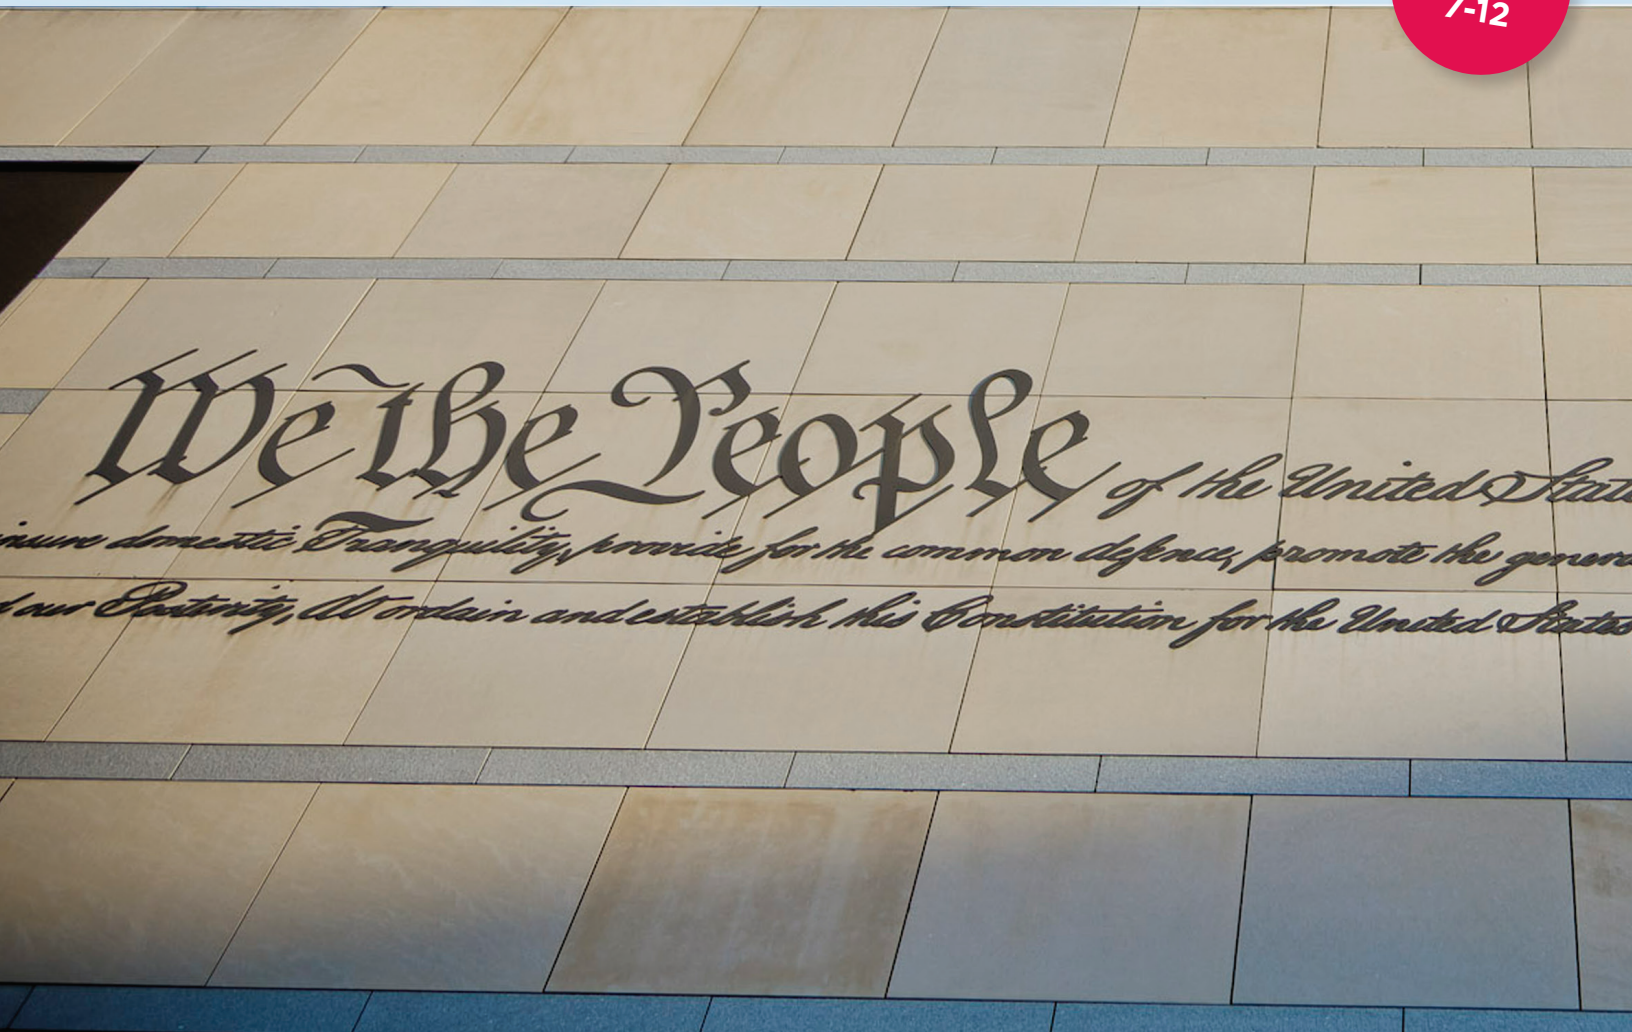 7-12
We the People of the United State
insure domestic Tranquility, provide for the common defence, promote the genera
d our Posterity, do ordain and establish this Constitution for the United States